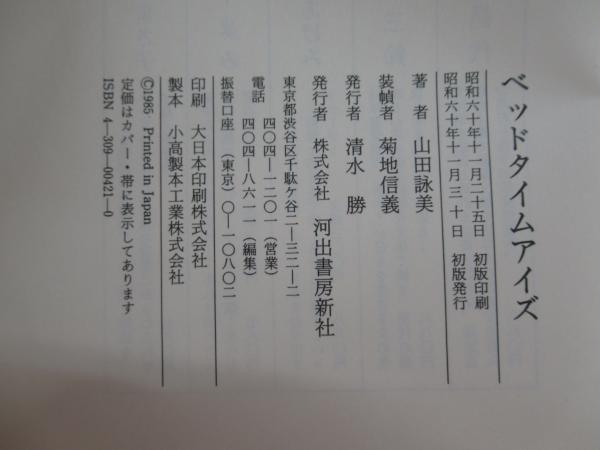 ベッドタイムアイズ
昭和六十年十一月二十五日 初版印刷
昭和六十年十一月三十日 初版発行
著者 山田詠美
装幀者 菊地信義
発行者 清水 勝
発行者 株式会社 河出書房新社
東京都渋谷区千駄ケ谷二―三二―二
電話 四〇四―一二〇一（営業）
四〇四―八六一一（編集）
振替口座 （東京）〇―一〇八〇二
印刷 大日本印刷株式会社
製本 小高製本工業株式会社
©1985 Printed in Japan
定価はカバー・帯に表示してあります
ISBN 4―309―00421―0